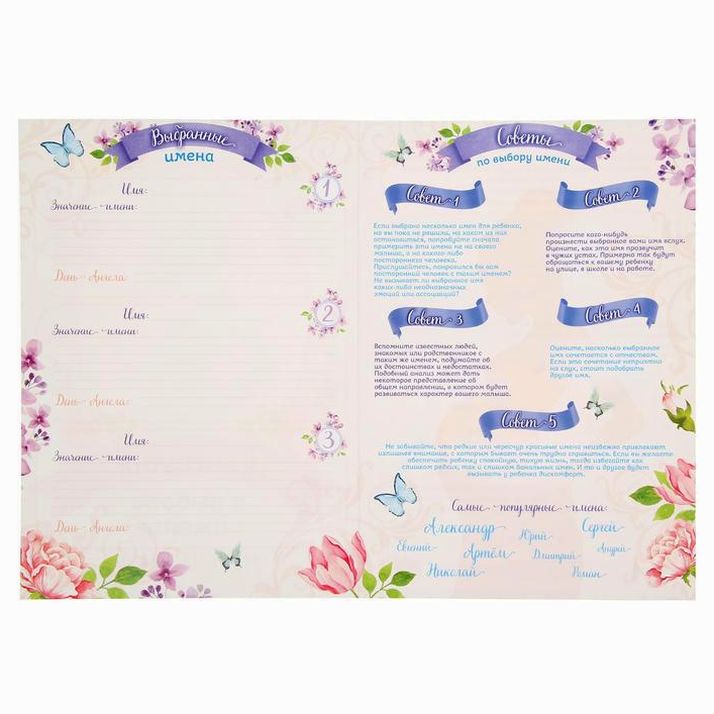 Выбранные
имена
1
Имя:
Значение имени:
День Ангела:
2
Имя:
Значение имени:
День Ангела:
3
Имя:
Значение имени:
День Ангела:
Советы
по выбору имени
Совет 1
Если выбрано несколько имен для ребенка,
но вы пока не решили, на каком из них
остановиться, попробуйте сначала
примерить эти имена не на своего
малыша, а на какого-либо
постороннего человека.
Прислушайтесь, понравился бы вам
посторонний человек с таким именем?
Не вызывает ли выбранное имя
каких-либо неоднозначных
эмоций или ассоциаций?
Совет 2
Попросите кого-нибудь
произнести выбранное вами имя вслух.
Оцените, как это имя прозвучит
в чужих устах. Примерно так будут
обращаться к вашему ребенку
на улице, в школе и на работе.
Совет 3
Вспомните известных людей,
знакомых или родственников с
таким же именем, подумайте об
их достоинствах и недостатках.
Подобный анализ может дать
некоторое представление об
общем направлении, в котором будет
развиваться характер вашего малыша.
Совет 4
Оцените, насколько выбранное
имя сочетается с отчеством.
Если это сочетание неприятно
на слух, стоит подобрать
другое имя.
Совет 5
Не забывайте, что редкие или чересчур красивые имена неизбежно привлекают
излишнее внимание, с которым бывает очень трудно справиться. Если вы желаете
обеспечить ребенку спокойную, тихую жизнь, тогда избегайте как
слишком редких, так и слишком банальных имен. И то и другое будет
вызывать у ребенка дискомфорт.
Самые популярные имена:
Александр Юрий Сергей
Евгений Артём Дмитрий Андрей
Николай Роман